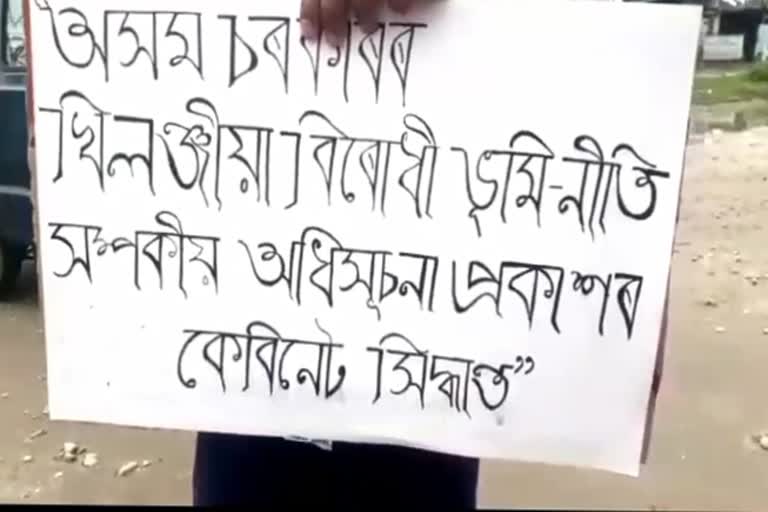 অসম চৰকাৰৰ
খিলঞ্জীয়া বিৰোধী ভূমি-নীতি
সম্পৰ্কীয় অধিসূচনা প্ৰকাশৰ
কেবিনেট সিদ্ধান্ত”